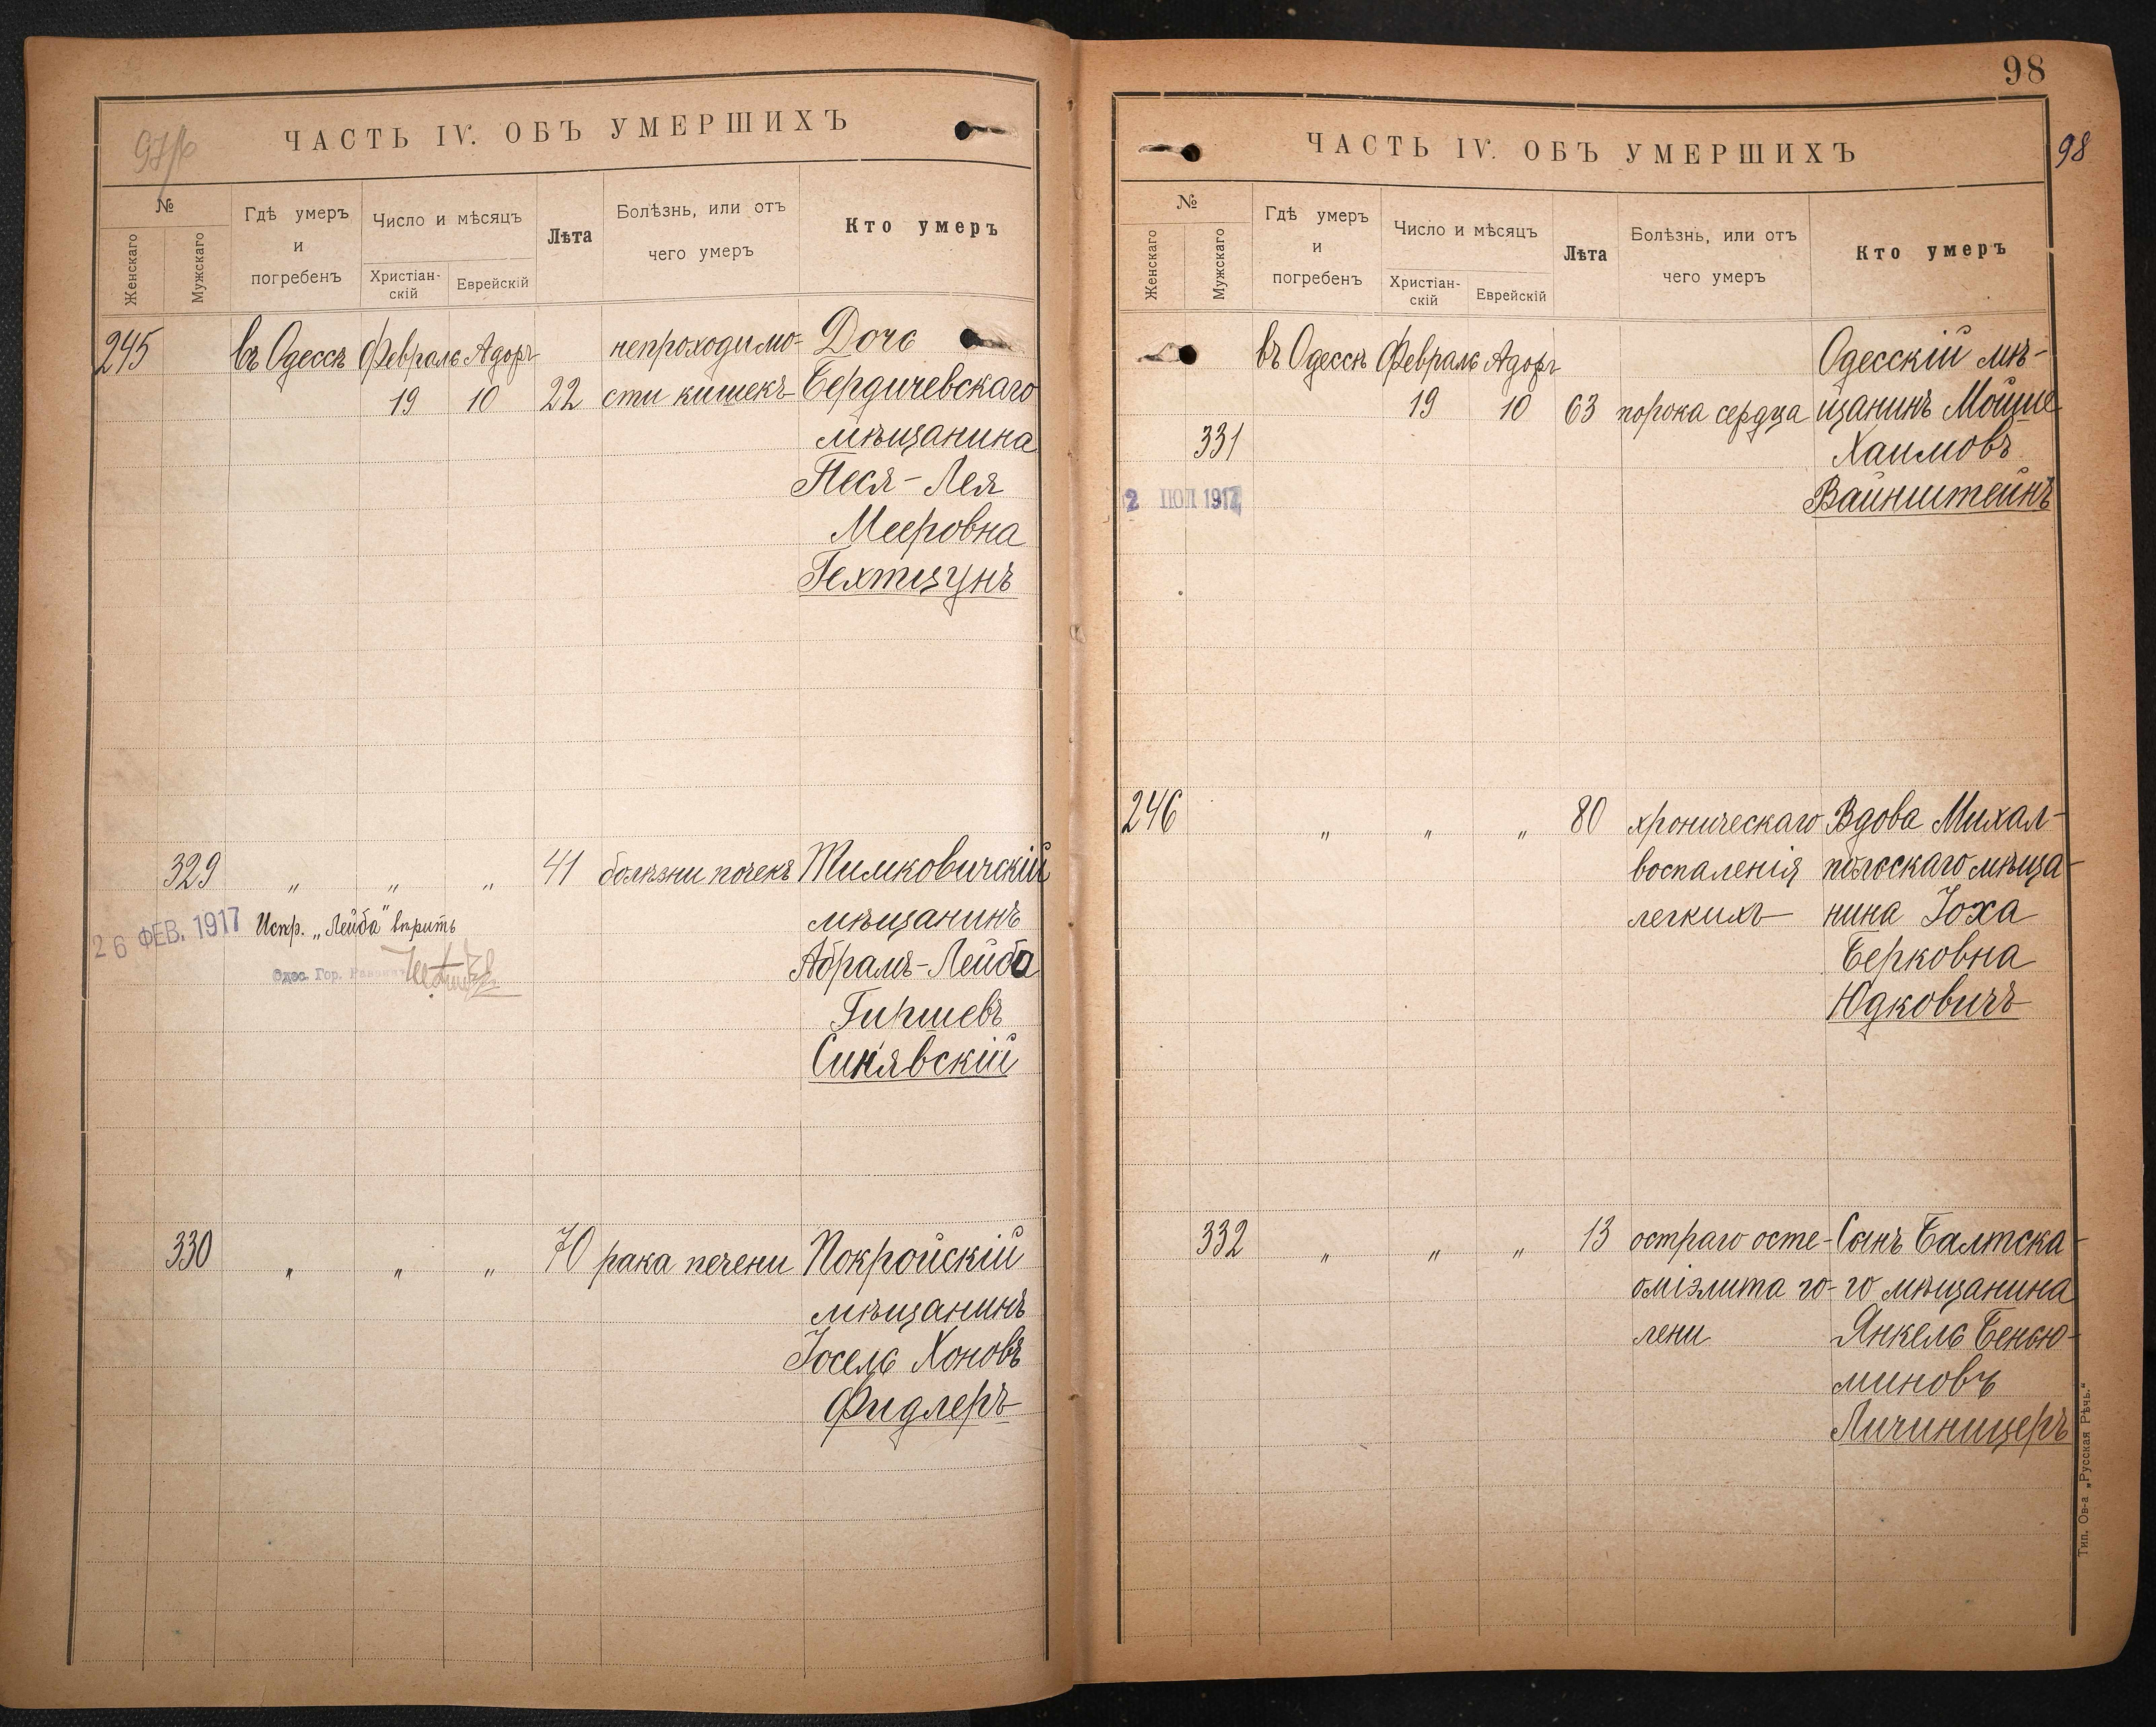 97/б
ЧАСТЬ IV. ОБЪ УМЕРШИХЪ
№
Женскаго
Мужскаго
Гдѣ умеръ
и
погребенъ
Число и мѣсяцъ
Христіан-
скій
Еврейскій
Лѣта
Болѣзнь, или отъ
чего умеръ
Кто умеръ
245 въ Одессѣ Февраль Адоръ непроходимо- Дочь
19 10 22 сти кишекъ Бердичевскаго
мѣщанина
Песя-Лея
Мееровна
Гехтцунъ
329 „ „ „ 41 болѣзни почекъ Тимковичскій
26 ФЕВ. 1917 Испр. „Лейба" вѣрить мѣщанинъ
Одес. Гор. Абрамъ-Лейба
Гиршевъ
Синявскій
330 „ „ „ 70 рака печени Покройскій
мѣщанинъ
Іосель Хоновъ
Фидлеръ
98
98
ЧАСТЬ IV. ОБЪ УМЕРШИХЪ
№
Женскаго
Мужскаго
Гдѣ умеръ
и
погребенъ
Число и мѣсяцъ
Христіан-
скій
Еврейскій
Лѣта
Болѣзнь, или отъ
чего умеръ
Кто умеръ
въ Одессѣ Февраль Адоръ Одесскій мѣ-
19 10 63 порока сердца щанинъ Мойше
331 Хаимовъ
2 ІЮЛ 1917 Вайнштейнъ
246 „ „ „ 80 хроническаго Вдова Михал-
воспаленія польскаго мѣща-
легкихъ нина Іоха
Берковна
Юдковичъ
332 „ „ „ 13 остраго осте- Сынъ Балтска-
оміэлита го- го мѣщанина
лени Янкель Бенью-
миновъ
Личиницеръ
Тип. Ов-а „Русская Рѣчь."